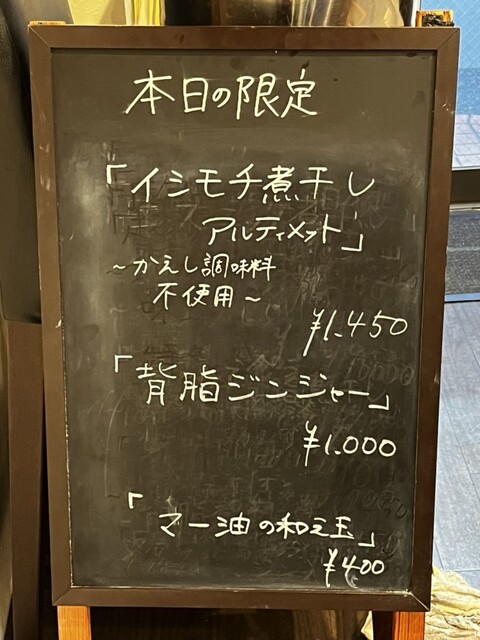 本日の限定
「イシモチ煮干し
アルティメット」
~かえし調味料
不使用~
¥1.450
「背脂ジンジャー」
¥1.000
「マー油の和え玉」
¥400